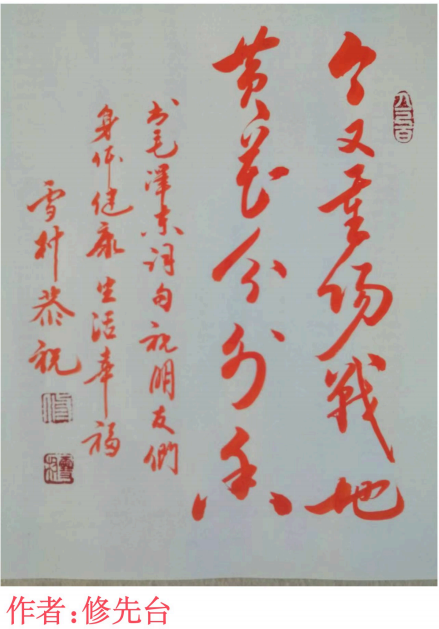 今又重陽戰地
黄花分外香
书毛澤东词句祝朋友們
身体健康生活幸福
雪村恭祝
作者:修先台